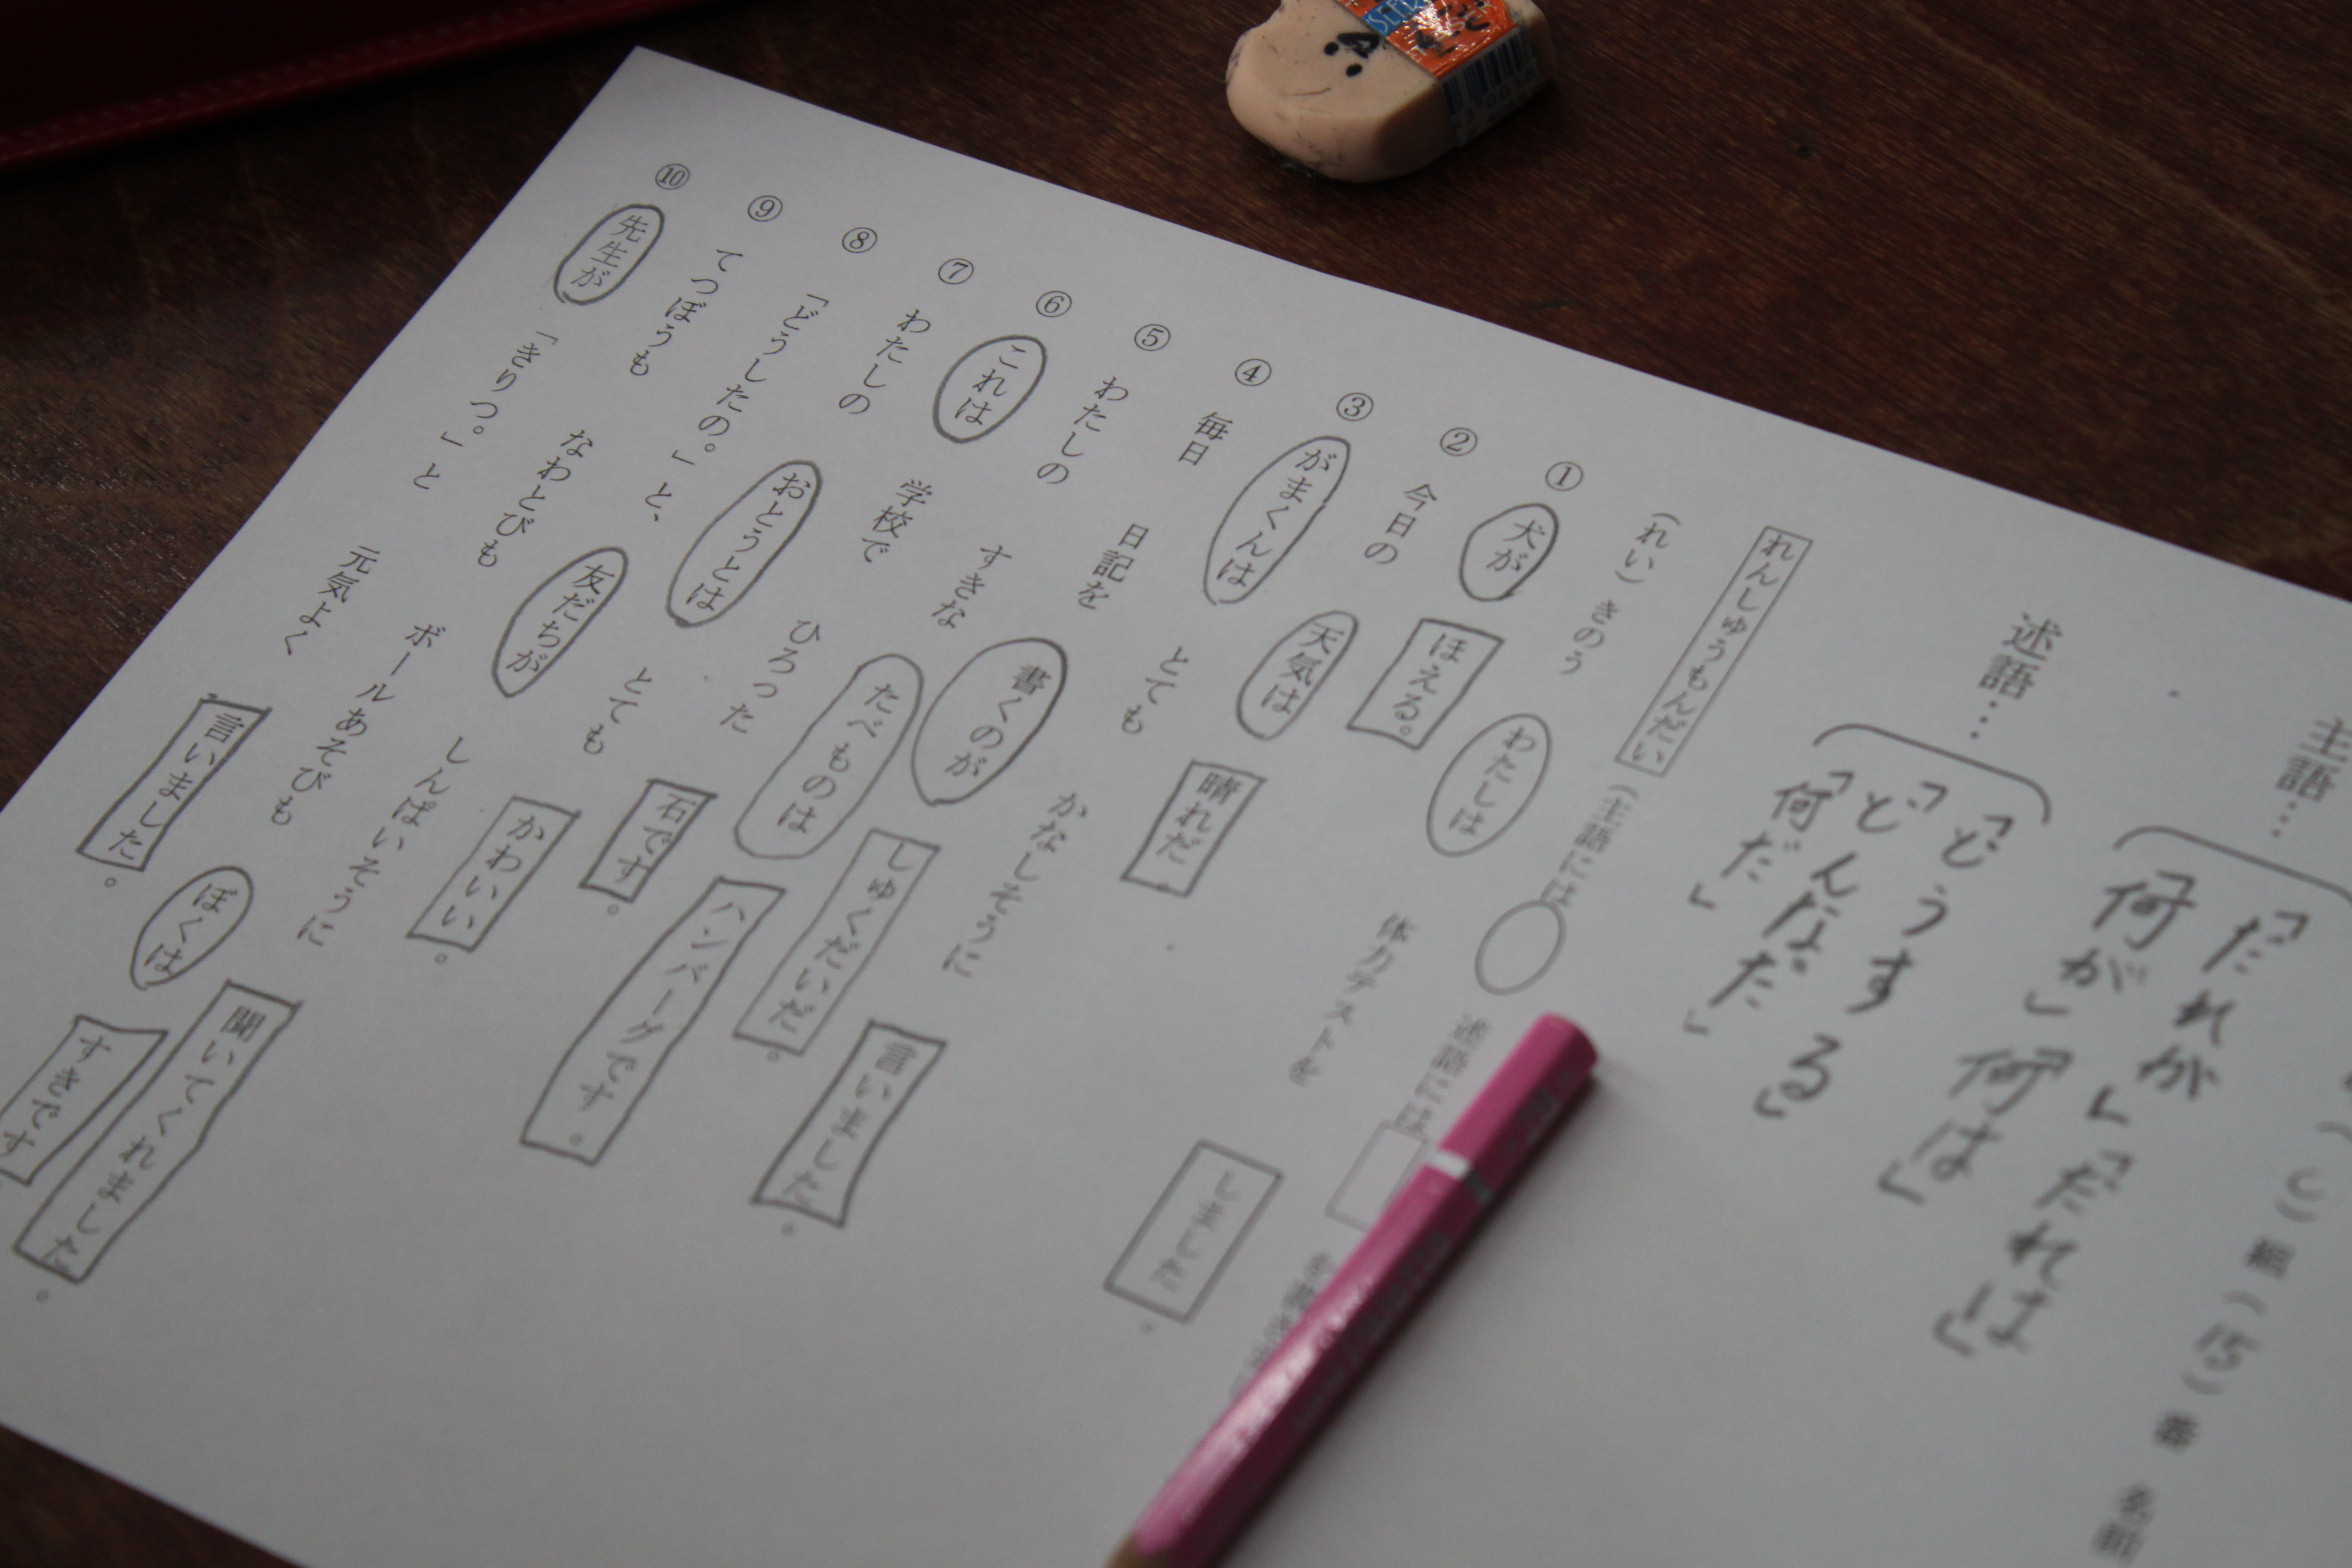 組(15)番 名前
主語…
「だれが」「だれは」
「何が」「何は」
述語…
「どうする」
「どんなだ」
「何だ」
れんしゅうもんだい (主語には○ 述語には□
(れい) きのう わたしは 体力テストを しました。
① 犬が ほえる。
② 今日の 天気は 晴れだ。
③ がまくんは とても かなしそうに 言いました。
④ 毎日 日記を 書くのが しゅくだいだ。
⑤ わたしの すきな たべものは ハンバーグです。
⑥ これは 学校で ひろった 石です。
⑦ わたしの おとうとは とても かわいい。
⑧ 「どうしたの。」と、 友だちが しんぱいそうに 聞いてくれました。
⑨ てつぼうも なわとびも ボールあそびも ぼくは すきです
⑩ 先生が 「きりつ。」と 元気よく 言いました。